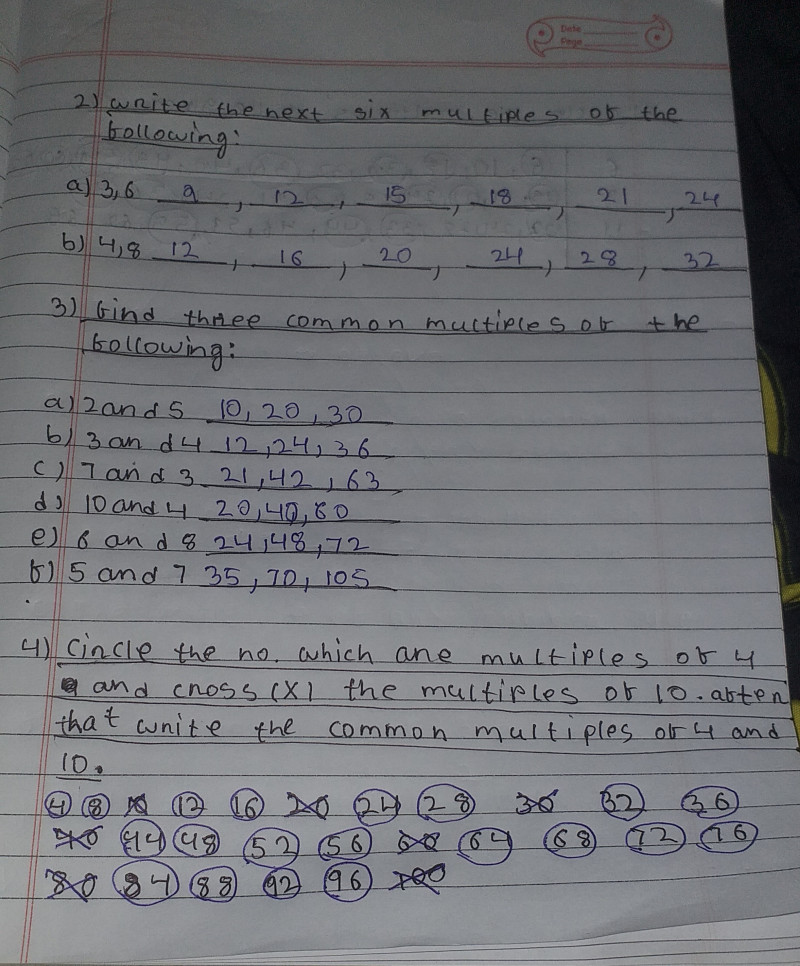 Date
Page
2) write the next six multiples of the
following:
a) 3,6 9, 12, 15, 18, 21, 24
b) 4,8 12, 16, 20, 24, 28, 32
3) find three common multiples of the
following:
a) 2 and 5 10, 20, 30
b) 3 and 4 12, 24, 36
c) 7 and 3 21, 42, 63
d) 10 and 4 20, 40, 60
e) 6 and 8 24, 48, 72
f) 5 and 7 35, 70, 105
4) Circle the no. which are multiples of 4
and cross (X) the multiples of 10. after
that write the common multiples of 4 and
10.
4 8 10 12 16 20 24 28 30 32 36
40 44 48 52 56 60 64 68 72 76
80 84 88 92 96 100